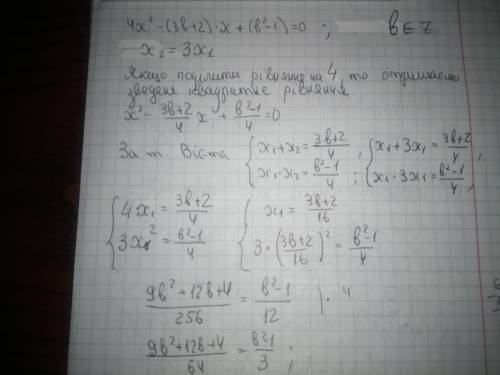 4x² - (3в+2)·x + (в²-1) = 0 ; в ∈ Z
x₂ = 3x₁
Якщо поділити рівняння на 4, то отримаємо
зведене квадратне рівняння
x² - (3в+2)/4 x + (в²-1)/4 = 0
За т. Вієта { x₁+x₂ = (3в+2)/4 , x₁·x₂ = (в²-1)/4 ; { x₁+3x₁ = (3в+2)/4 , x₁·3x₁ = (в²-1)/4 ,
{ 4x₁ = (3в+2)/4 , 3x₁² = (в²-1)/4 { x₁ = (3в+2)/16 , 3·((3в+2)/16)² = (в²-1)/4
(9в²+12в+4)/256 = (в²-1)/12 | · 4
(9в²+12в+4)/64 = (в²-1)/3 ;